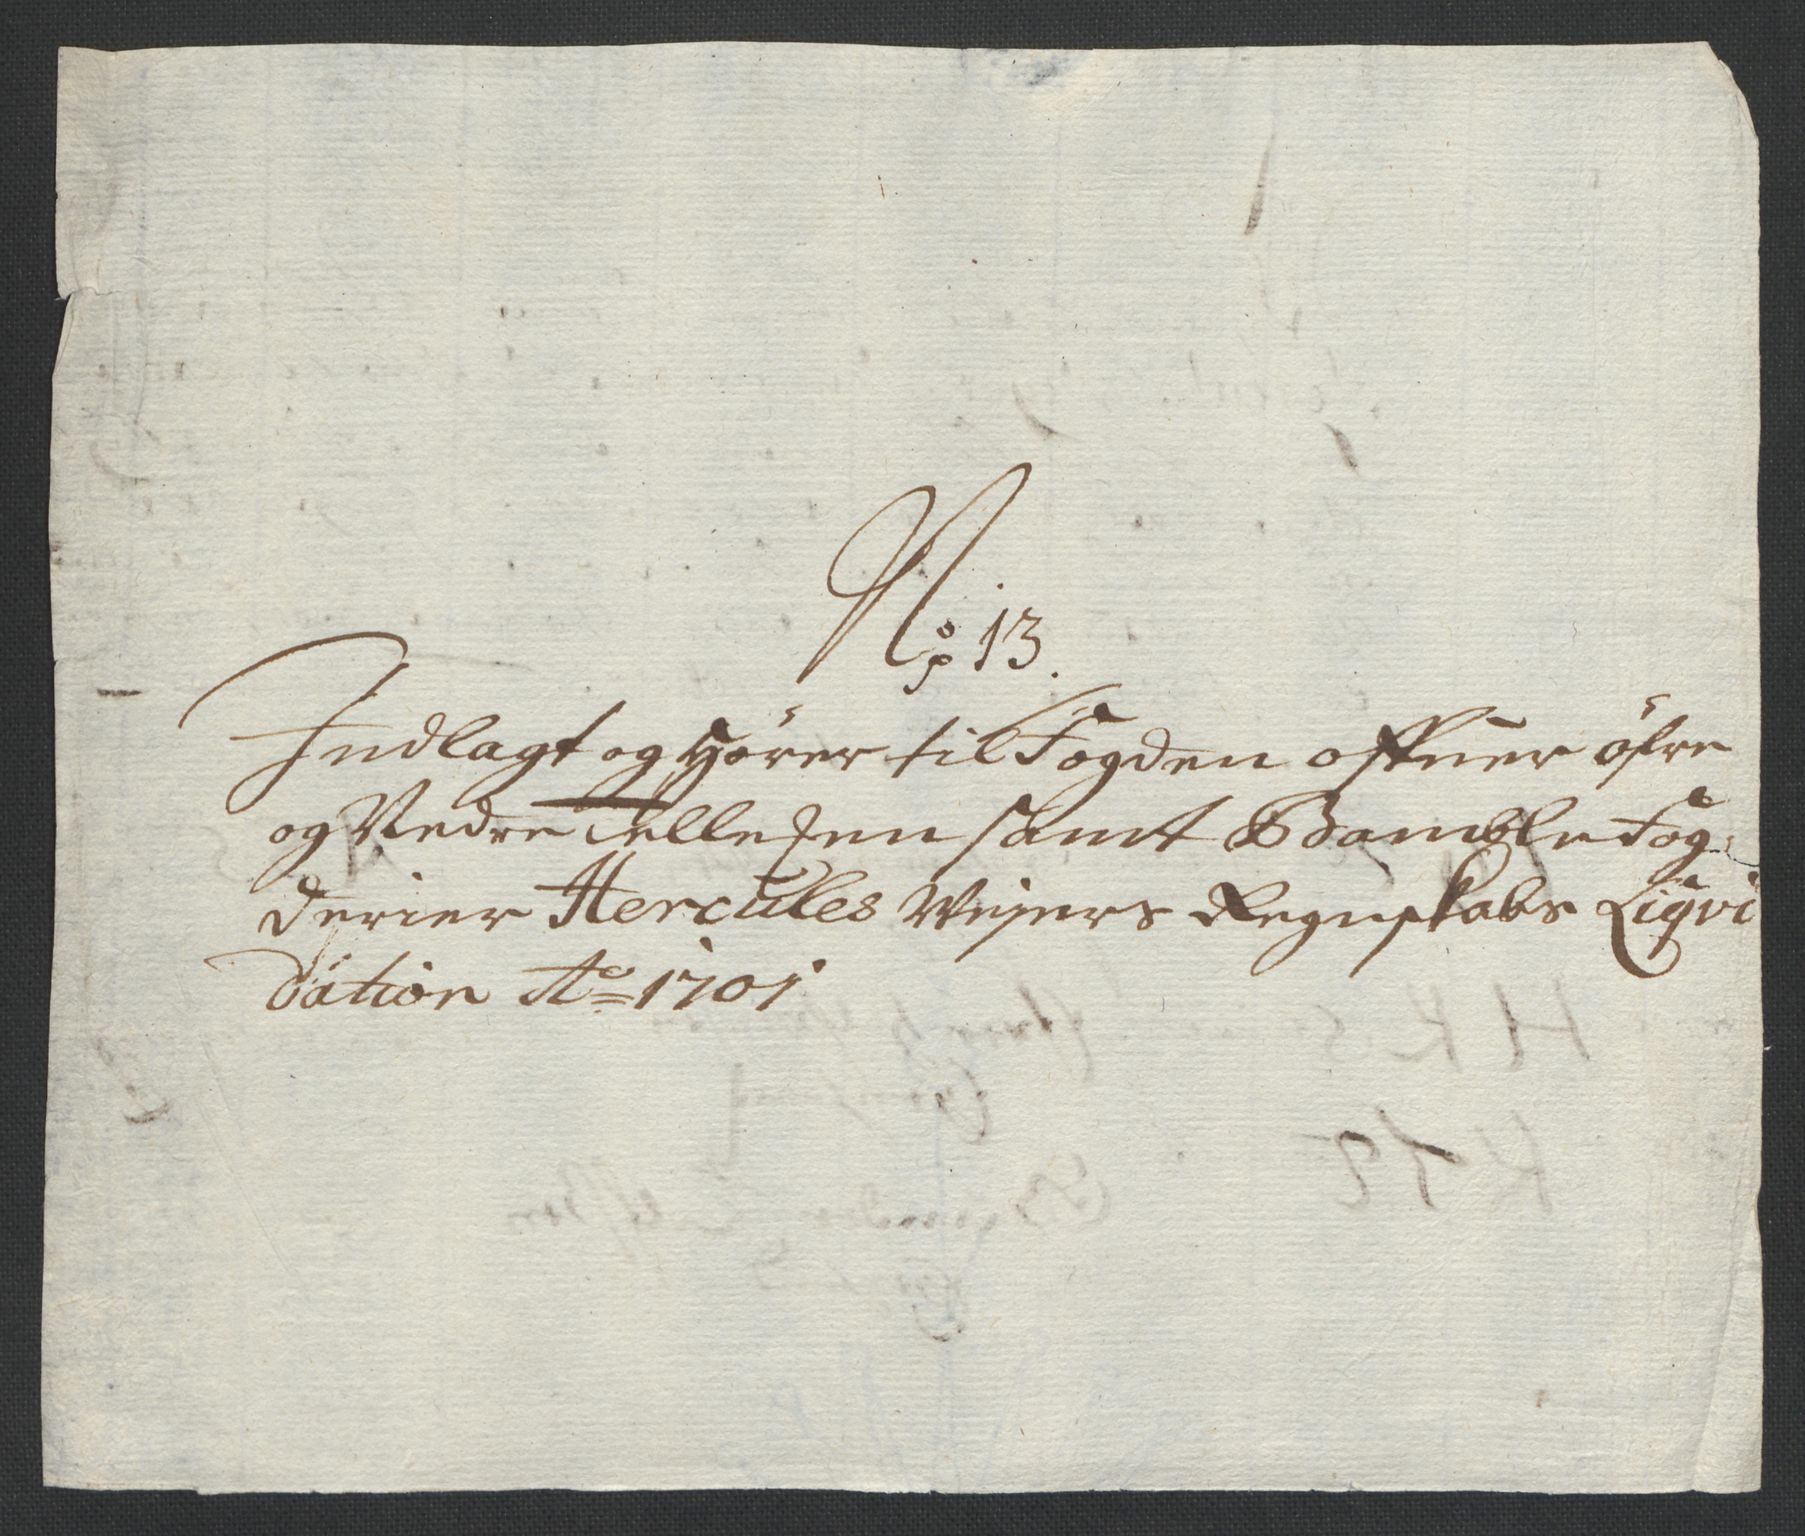 No 13.
Indlagt og Hører til Fogden offuer öfre
og Nedre Tellefen samt Bamble Fog-
derier Hercules Weÿers Regnskabs Liqvi
dation Ao 1701